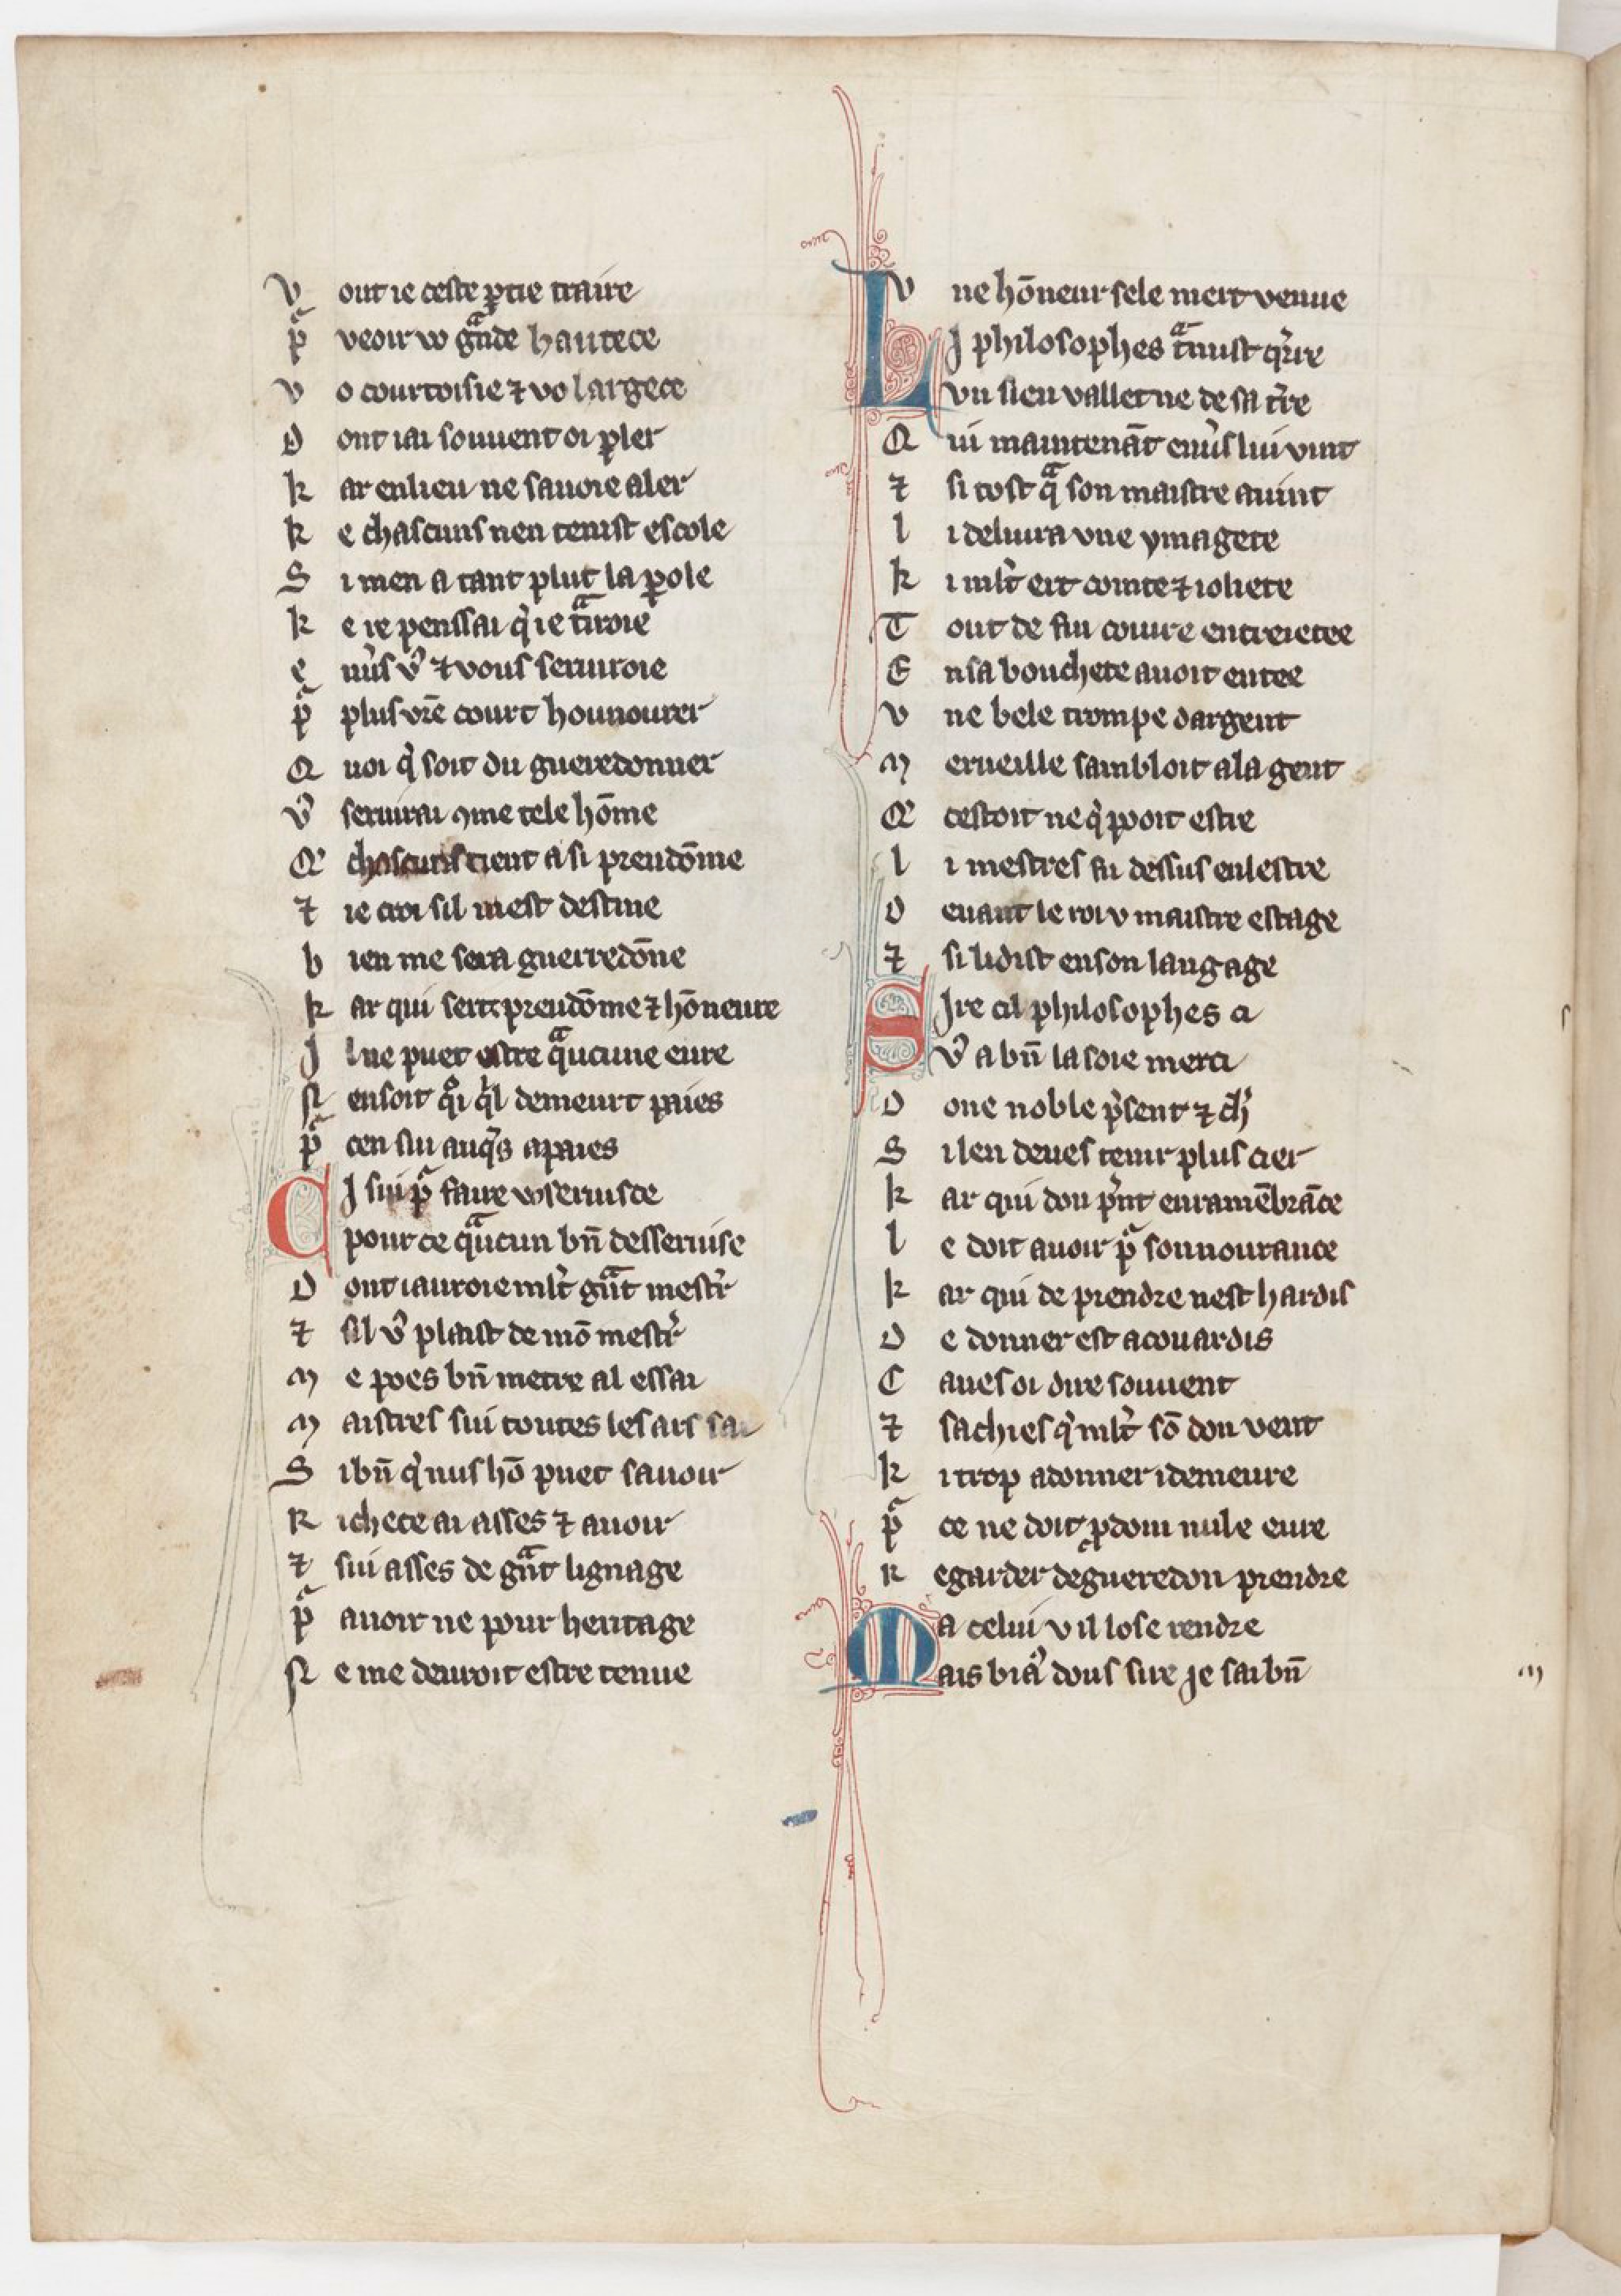 V out ie ceste ꝑtie traire
pᵃ veoir vo gᵃnde hautece
v o courtoisie ⁊ vo largece
D ont iai souuent oi ꝑler
k ar enlieu ne sauoie aler
k e chascuns nen tenist escole
S i men a tant plut la ꝑole
k e ie penssai qͥ ie tᵃiroie
e nu̾s vꝰ ⁊ vous seruiroie
pᵃ plus vr̄e court hounourer
Q uoi qͥ soit du gueredonner
vꝰ seruirai ꝯme tele hōme
Qͤ chascuns tient a si preudōme
⁊ ie croi sil mest destine
b ien me sera guerredōne
k ar qui sert preudōme ⁊ hōneure
J l ne puet estre qᵃucune eure
N ensoit qͦi qͥl demeurt paies
pᵃ cen sui auqͤs apaies
C J sui pᵃ faire vo seruisce
pour ce qᵃucun bn̄ desseruise
D ont iauroie ml̾t gᵃnt mest̾r
⁊ sil vꝰ plaist de mō mest̾r
M e poes bn̄ metre al essai
M aistres sui toutes les ars sai
S i bn̄ qͥ nus hō puet sauoir
R ichece ai asses ⁊ auoir
⁊ sui asses de gᵃnt lignage
pᵃ auoir ne pour heritage
N e me deuroit estre tenue
V ne hōneur sele mert venue
L J philosophes tᵃnust q̾rre
vn sien vallet ne de sa t̾re
Q ui maintenāt enu̾s lui vint
⁊ si tost qᵃ son maistre auint
l i deliura vne ymagete
k i ml̾t ert cointe ⁊ ioliete
T out de fin couure entreietee
E nsa bouchete auoit entee
v ne bele trompe dargent
M erueille sambloit ala gent
Qͤ cestoit ne qͥ pooit estre
l i mestres fu dessus enlestre
D euant le roi v maistre estage
⁊ si li dist enson langage
S Jre cil philosophes ci
vꝰ a bn̄ la soie merci
D one noble p̾sent ⁊ ch̾
S i len deues tenir plus cier
k ar qui don pͬnt enramēbrāce
l e doit auoir pᵃ sonnourance
k ar qui de prendre nest hardis
D e donner est acouardis
C aues oi dire souuent
⁊ sachies qͥ ml̾t sō don vent
k i trop adonner idemeure
pᵃ ce ne doit ꝓdom nule eure
R egarder de gueredon prendre
M a celui v il lose rendre
ais biaꝰ dous sire je sai bn̄
m